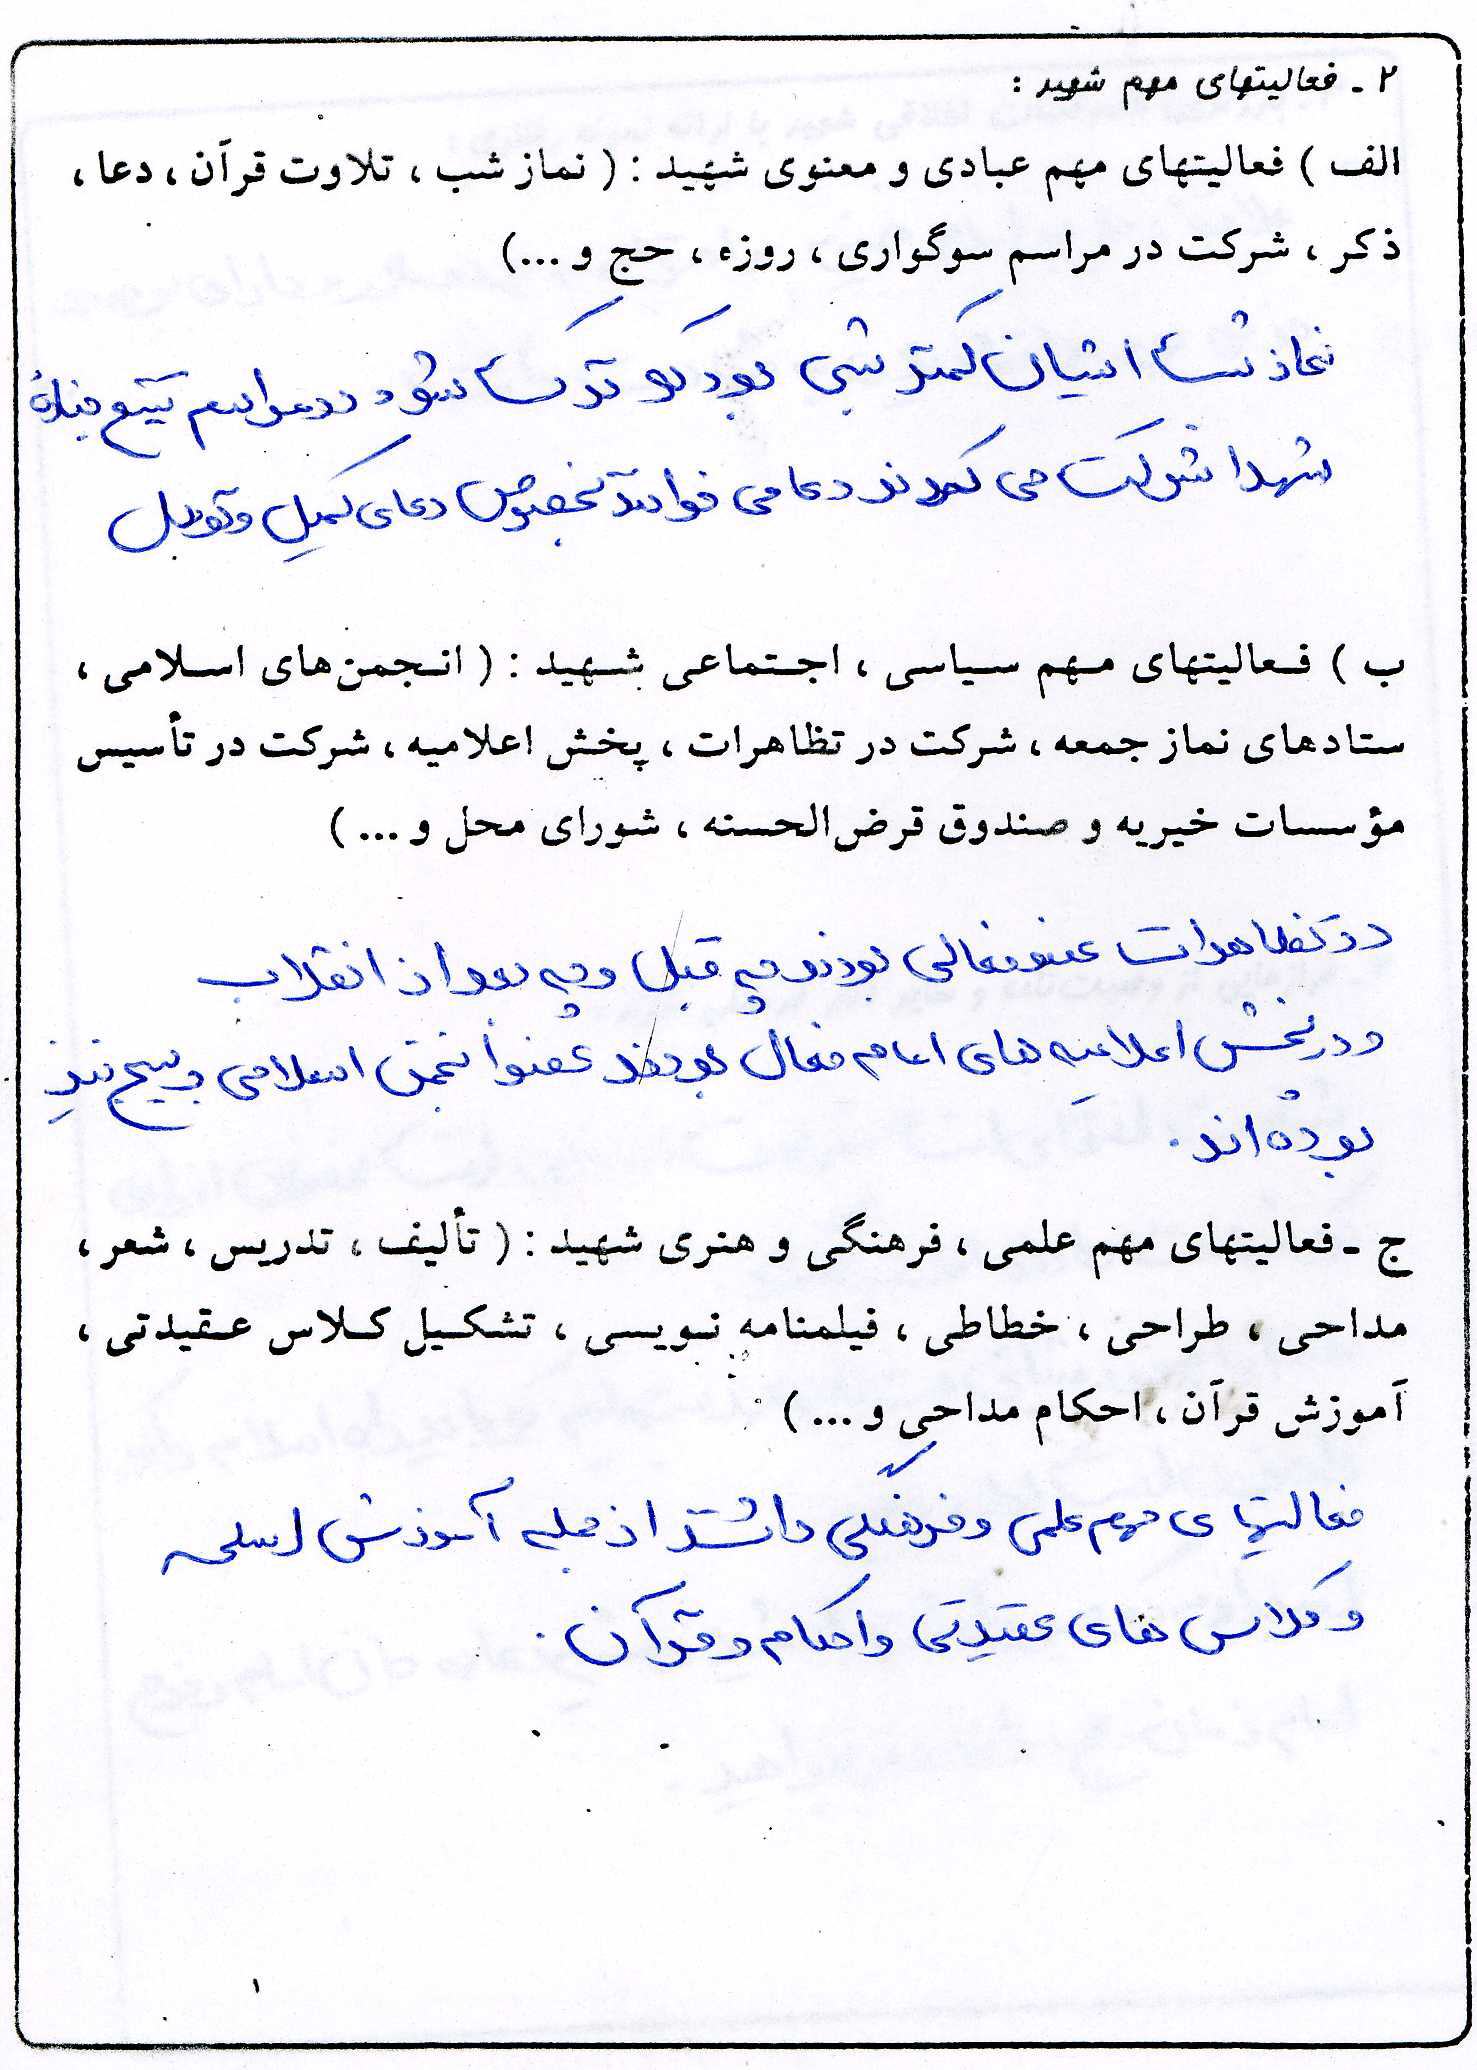 ۲ ـ فعالیتهای مهم شهید :
الف ) فعالیتهای مهم عبادی و معنوی شهید : ( نماز شب ، تلاوت قرآن ، دعا ،
ذکر ، شرکت در مراسم سوگواری ، روزه ، حج و ...)
نماز شب ایشان کمتر شبی بود که ترک شود در مراسم تشییع جنازه
شهدا شرکت می کردند دعا می خواندند بخصوص دعای کمیل و توسل
ب ) فعالیتهای مهم سیاسی ، اجتماعی شهید : ( انجمن‌های اسلامی ،
ستادهای نماز جمعه ، شرکت در تظاهرات ، پخش اعلامیه ، شرکت در تأسیس
مؤسسات خیریه و صندوق قرض‌الحسنه ، شورای محل و ... )
در تظاهرات عضو فعالی بودند چه قبل و چه بعد از انقلاب
و در پخش اعلامیه های امام فعال بودند عضو انجمن اسلامی و بسیج نیز
بوده اند .
ج ـ فعالیتهای مهم علمی ، فرهنگی و هنری شهید : ( تألیف ، تدریس ، شعر ،
مداحی ، طراحی ، خطاطی ، فیلمنامه نویسی ، تشکیل کلاس عقیدتی ،
آموزش قرآن ، احکام مداحی و ... )
فعالیتهای مهم علمی و فرهنگی داشتند از جمله آموزش اسلحه
و کلاس های عقیدتی و احکام و قرآن .
۱